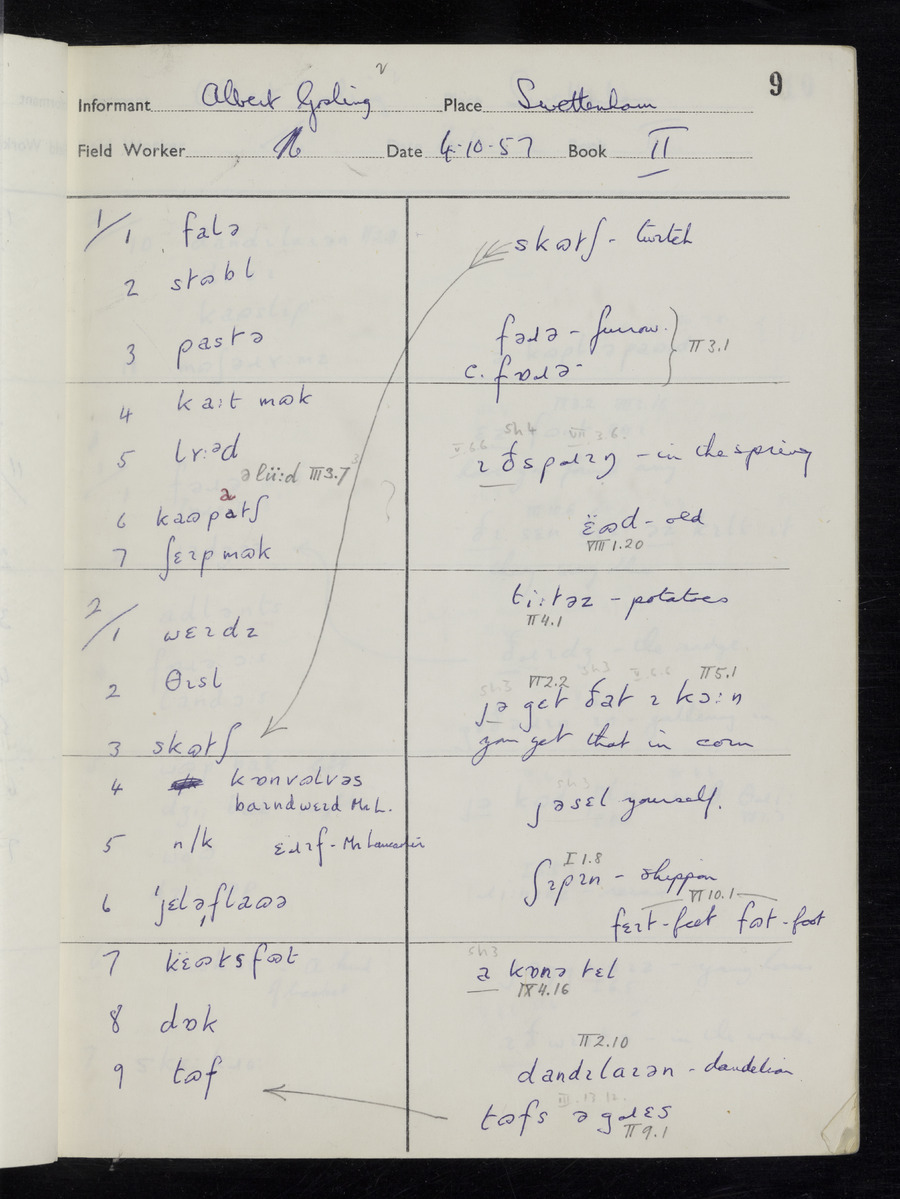 9
Informant Albert Gosling Place Swettenham
Field Worker Date 4·10·57 Book II
1/1 falə
2 stɷbl
3 pastə
4 ka:t mɷk
5 lɪ:əd
əlïi:d III 3.7
6 kaɷpətʃ
7 ʃɛɪp mɷk
2/1 wɛɪdz
2 θɪsl
3 skɷtʃ
4 kɒnvɒlvəs
baɪndwɛɪd Mr L.
5 n/k ɛɹɪf - Mr Lancaster
6 ˈjɛləˌflaɷə
7 kɛ̈ɷtsfɷt
8 dɒk
9 tɷf
skɷtʃ - twitch
fəɹə - furrow.
c. fɒɹə - } II 3.1
sh 4 VII 3.6.
V.6.6 ɪ ðspɹɪŋ - in the spring
ɛ̈ɷd - old
VIII 1.20
ti:təz - potatoes
II 4.1
VI 2.2 II 5.1
jə get ðat ɪ kɔ:n
you get that in corn
jəsɛl yourself.
I 1.8
ʃɪpɪn - shippon
VI 10.1
fɛɪt - feet fɷt - foot
ch3
ə kɒnə tɛl
IX 4.16
II 2.10
dandɪlaɪən - dandelion
tɷfs ə gɹɛs
II 9.1